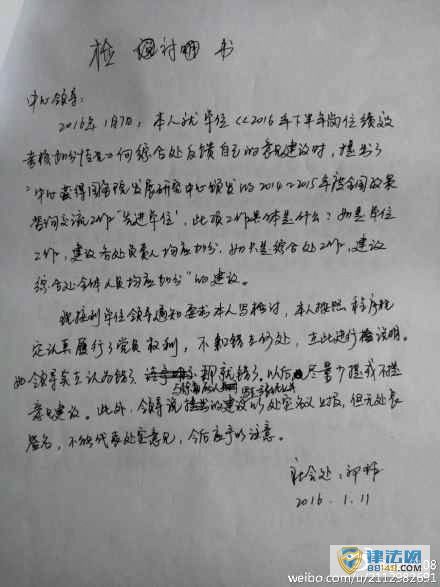 检讨书
中心领导：
2016年1月7日，本人就单位《2016年下半年岗位绩效
考核加分情况》向综合处反馈自己的意见建议时，提出了
"中心获得国务院发展研究中心颁发的2014-2015年度全国政策
咨询交流工作'先进单位'，此项工作具体是什么？如是单位
工作，建议各处负责人均应加分，如只是综合处工作，建议
综合处全体人员均应加分"的建议。
我接到单位领导通知要求本人写检讨，本人按照程序规
定认真履行了党员权利，不知错在何处，在此进行检说明。
如领导实在认为错了，那就错了。以后尽量少提或不提
意见建议。此外，领导说提出的建议以处室名义上报，但无处长
签名，不能代表处室意见，今后应予以注意。
社会处：
2016.1.11
律法网
88148.com
weibo.com/u/2112982691